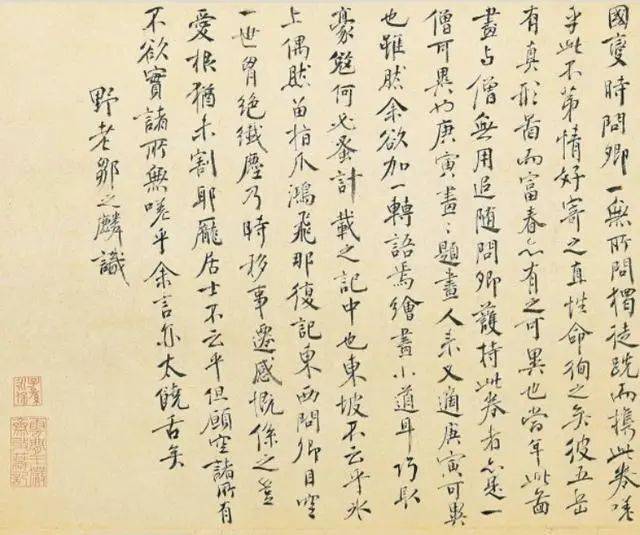 國變時問卿一無所問獨徒跣而攜此卷嗟
乎此不第情好寄之直性命徇之矣彼五岳
有真形圖而富春亦有之可異也當年此圖
畫与僧無用追隨問卿護持此卷者亦是一
僧可異也庚寅畫〻題畫人来又適庚寅可異
也雖然余欲加一轉語焉繪畫小道耳巧取
豪敓何必蚤計載之記中也東坡不云乎冰
上偶然留指爪鴻飛那復記東西問卿目空
一世胷絕纖塵乃時移事遷感慨係之豈
愛根猶未割耶龐居士不云乎但願空諸所有
不欲實諸所無嗟乎余言亦太饒舌矣
野老鄒之麟識